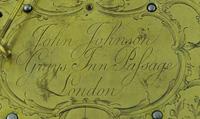 John Johnson
Grays Inn Passage
London